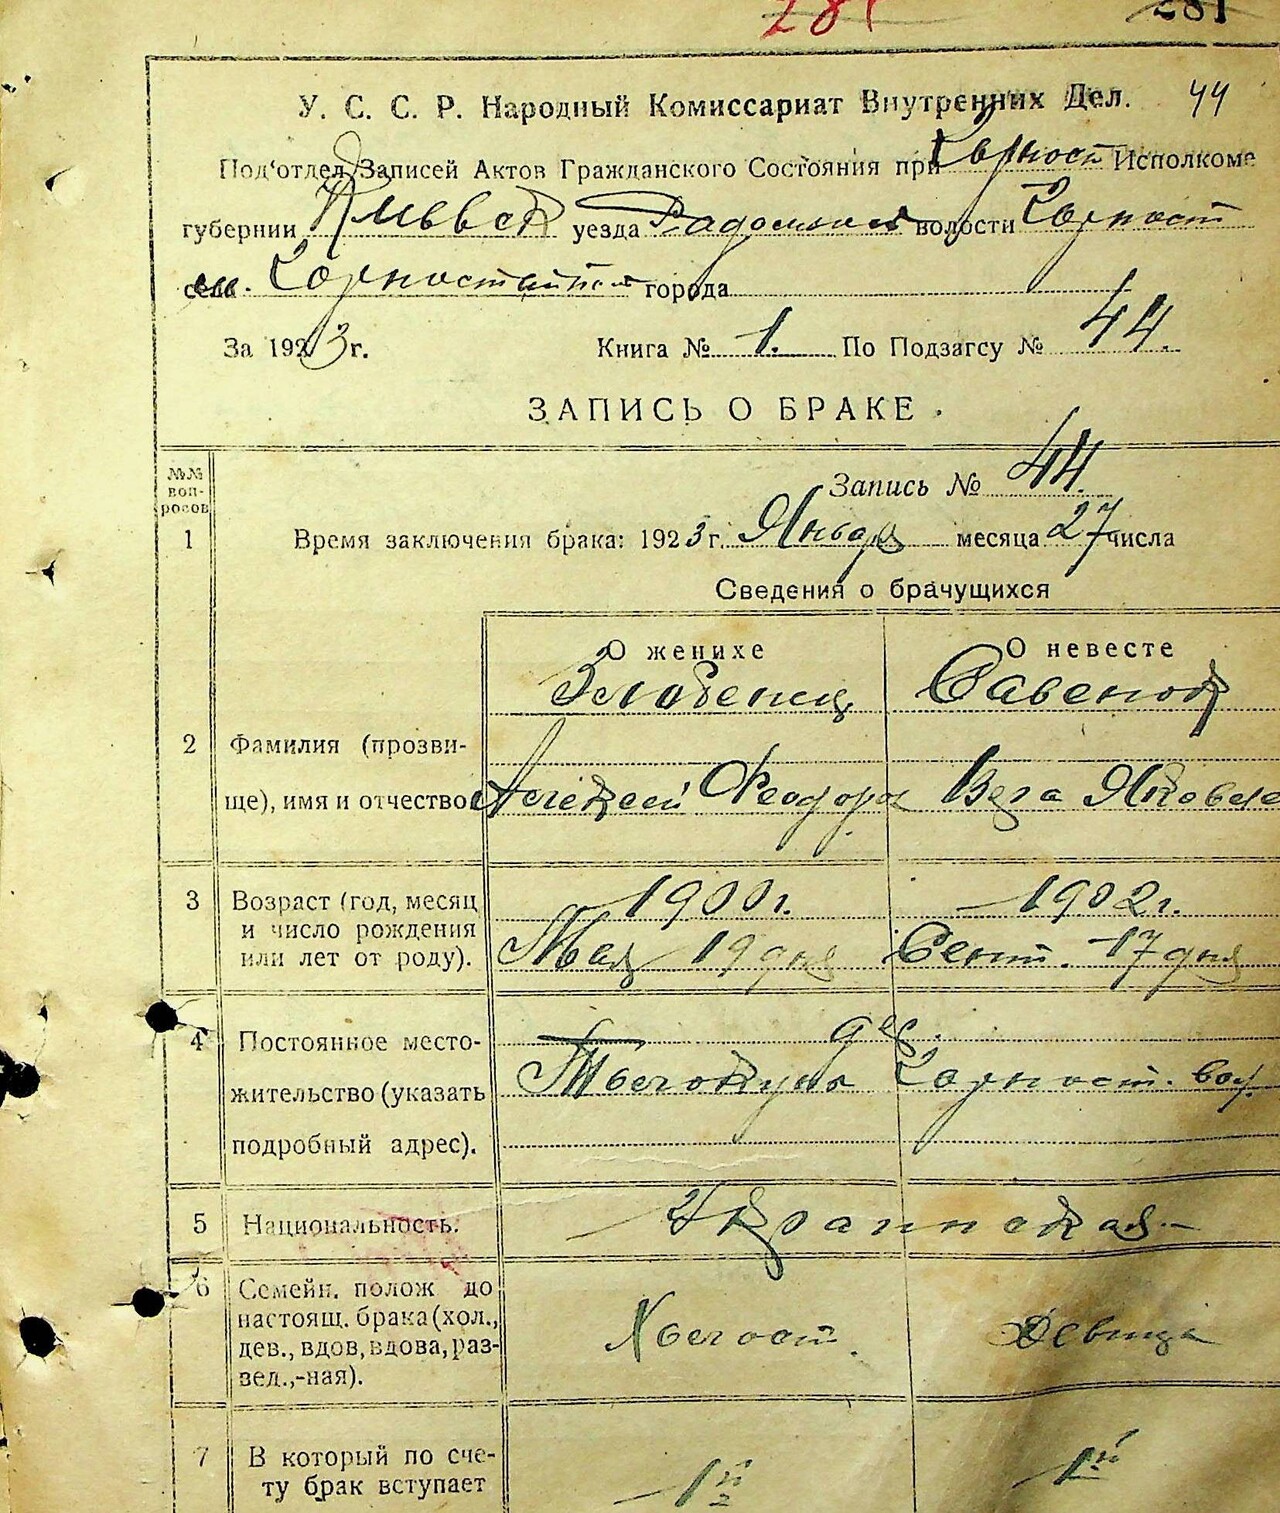 281 281
У. С. С. Р. Народный Комиссариат Внутренних Дел. 44
Под'отдел Записей Актов Гражданского Состояния при Горност Исполкоме
губернии Киевск уезда Радомысл волости Горност
города
За 1923 г. Книга № 1. По Подзагсу № 44.
ЗАПИСЬ О БРАКЕ.
№№ вопросов
Запись № 44.
1 Время заключения брака: 1923 г. Январ месяца 27 числа
Сведения о брачущихся
О женихе О невесте
Злобенец Савенок
2 Фамилия (прозви-
ще), имя и отчество Алексей Феодоров Вера Яковле
3 Возраст (год, месяц 1900 г. 1902 г.
и число рождения
или лет от роду). Мая 19 дня Сент. 17 дня
4 Постоянное место- дер.
жительство (указать Горност. вол.
подробный адрес).
5 Национальность. Украинская
6 Семейн. полож до
настоящ. брака (хол., Холост. Девица
дев., вдов, вдова, раз-
вед.,-ная).
7 В который по сче- 1й 1й
ту брак вступает